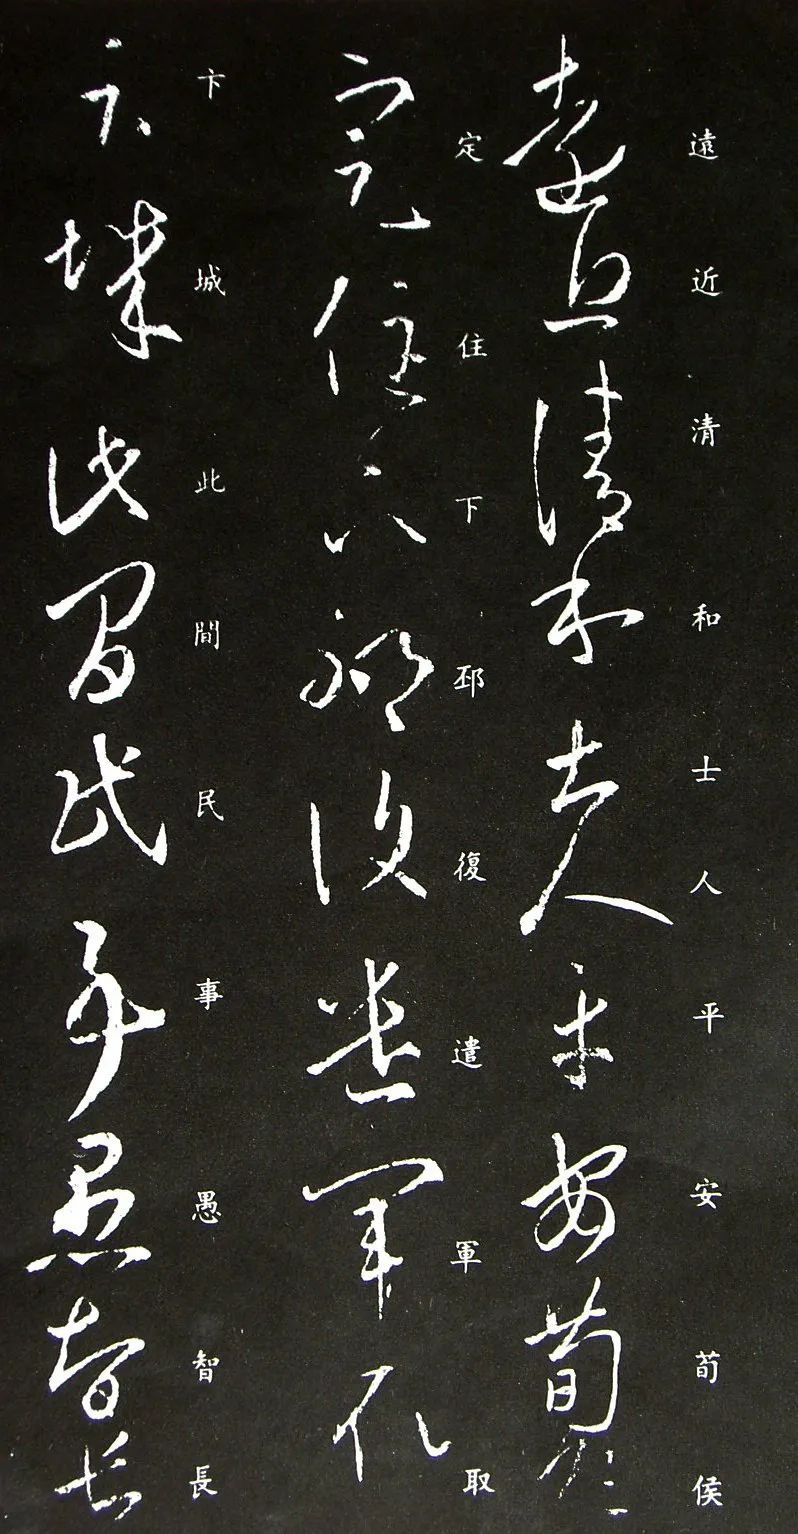 遠近清和士人平安荀侯
定住下邳復遣軍取
卞城此間民事愚智長